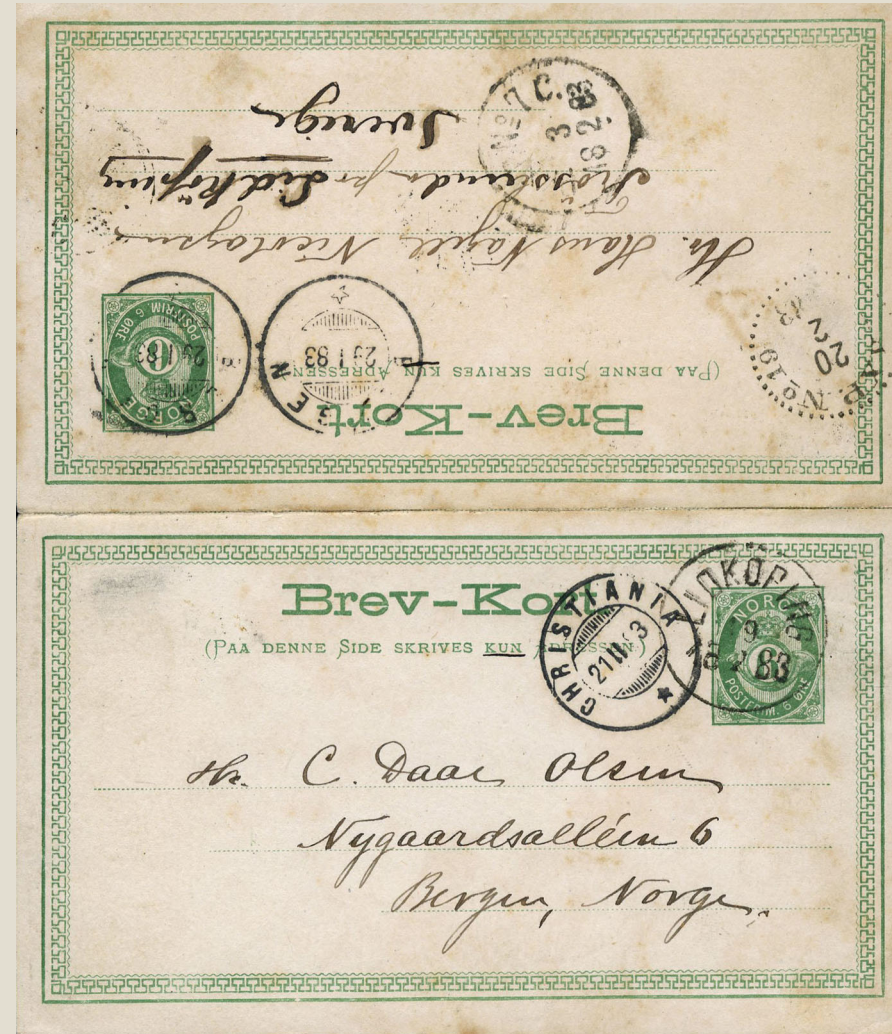 Brev-Kort
(PAA DENNE SIDE SKRIVES KUN ADRESSEN)
29 I 83
29 I 83
NORGE
POSTFRIM. 6 ØRE
Hr. Hans Nagel
pr Lidköping
Sverige
No 7 C.
3
No 19
20
Brev-Kort
(PAA DENNE SIDE SKRIVES KUN ADRESSEN)
CHRISTIANIA
21 II 83
LIDKÖPING
9
2
83
NORGE
POSTFRIM. 6 ØRE
Hr. C. Daae Olsen
Nygaardsalléen 6
Bergen, Norge.